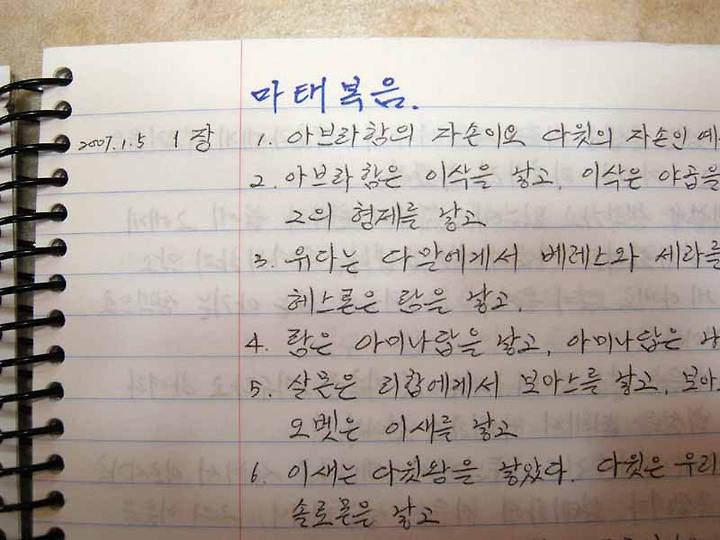 마태복음.
2007.1.5 1장 1. 아브라함의 자손이요 다윗의 자손인 예
2. 아브라함은 이삭을 낳고, 이삭은 야곱을
그의 형제를 낳고
3. 유다는 다말에게서 베레스와 세라를
헤스론은 람을 낳고,
4. 람은 아미나답을 낳고, 아미나답은 나
5. 살몬은 라합에게서 보아스를 낳고, 보아
오벳은 이새를 낳고
6. 이새는 다윗왕을 낳았다. 다윗은 우리
솔로몬을 낳고